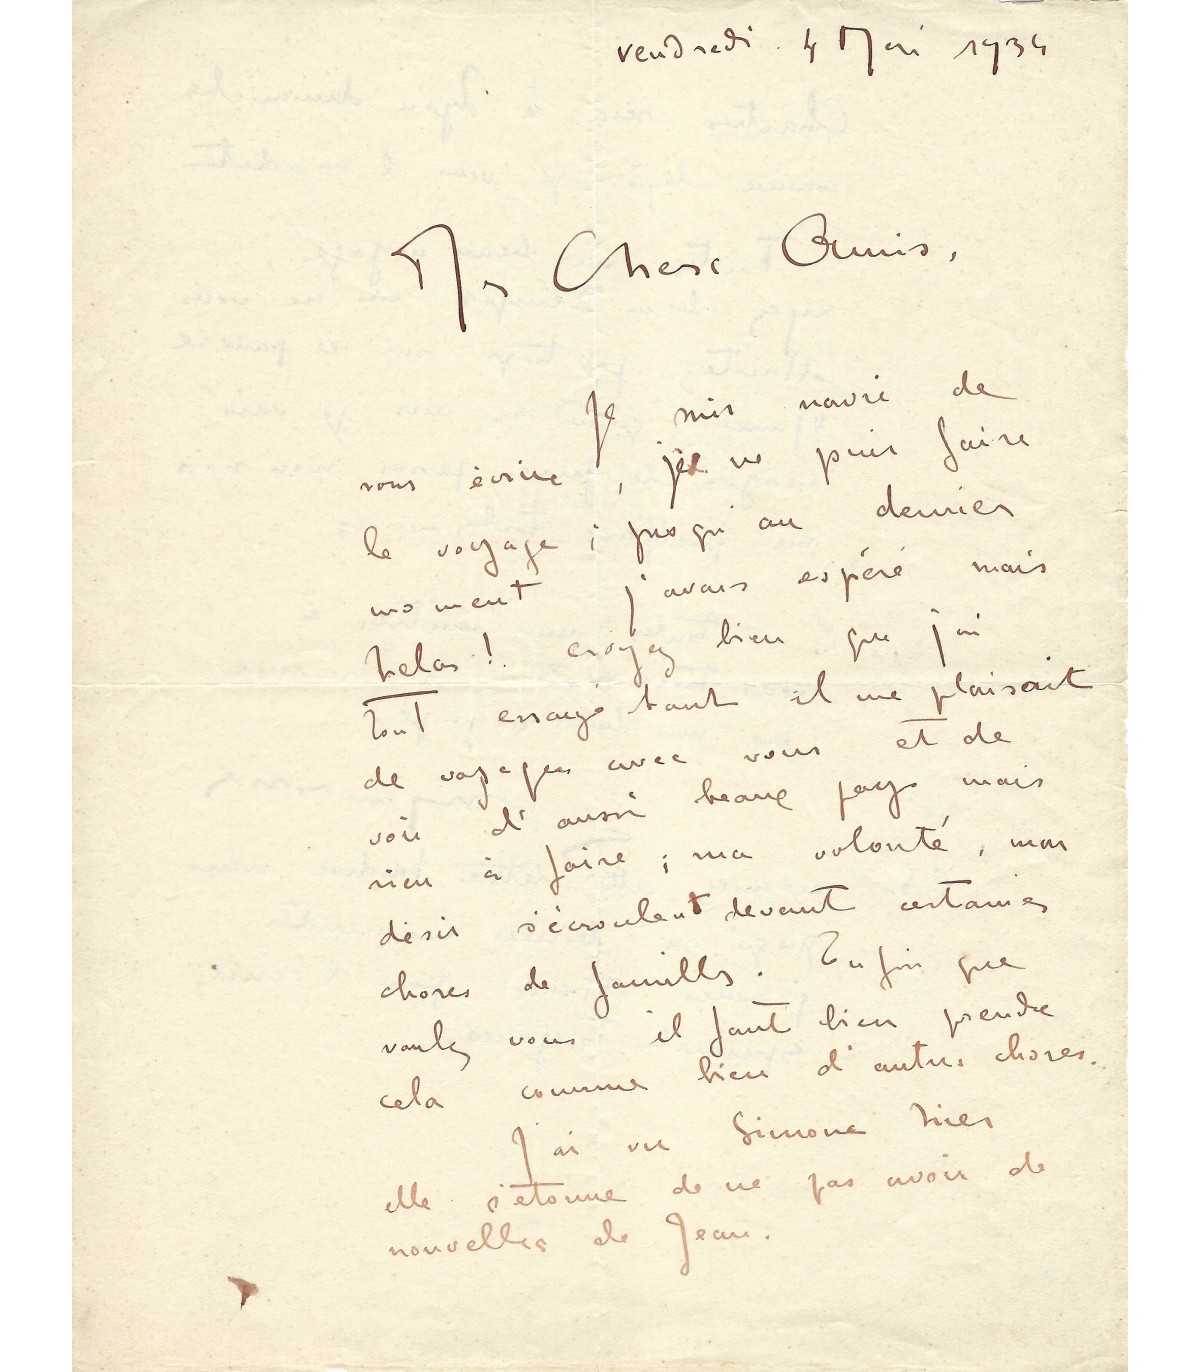 vendredi 4 Mai 1934
Mes Chers Amis,
Je suis navré de
vous écrire, je ne puis faire
le voyage ; jusqu'au dernier
moment j'avais espéré mais
helas ! croyez bien que j'ai
tout essayé tant il me plaisait
de voyager avec vous et de
voir d'aussi beaux pays mais
rien à faire ; ma volonté, mon
désir s'écroulent devant certaines
choses de familles. Enfin que
voulez vous il faut bien prendre
cela comme bien d'autres choses.
J'ai vu Simone hier
elle s'etonne de ne pas avoir de
nouvelles de Jean.